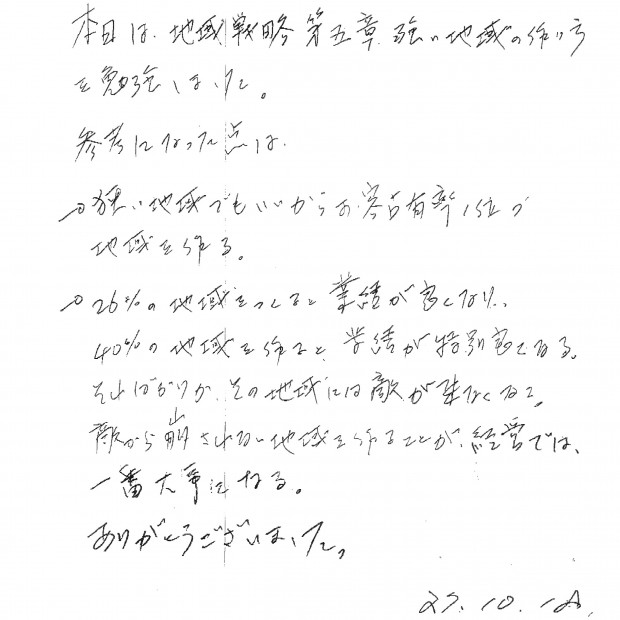 本日は、地域戦略 第五章 強い地域の作り方
を勉強しました。
参考になった点は、
→狭い地域でもいいからお客占有率1位の
地域を作る。
→26%の地域をつくると業績が良くなり、
40%の地域を作ると、業績が特別良くなる。
そればかりか、その地域には敵が来なくなる。
敵から崩されない地域を作ることが、経営では、
一番大事になる。
ありがとうございました。
27.10.